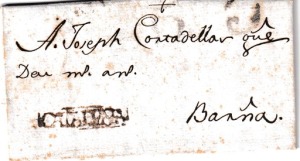 A. Joseph Cortadellas que
Deu m.s an.s
Barña.